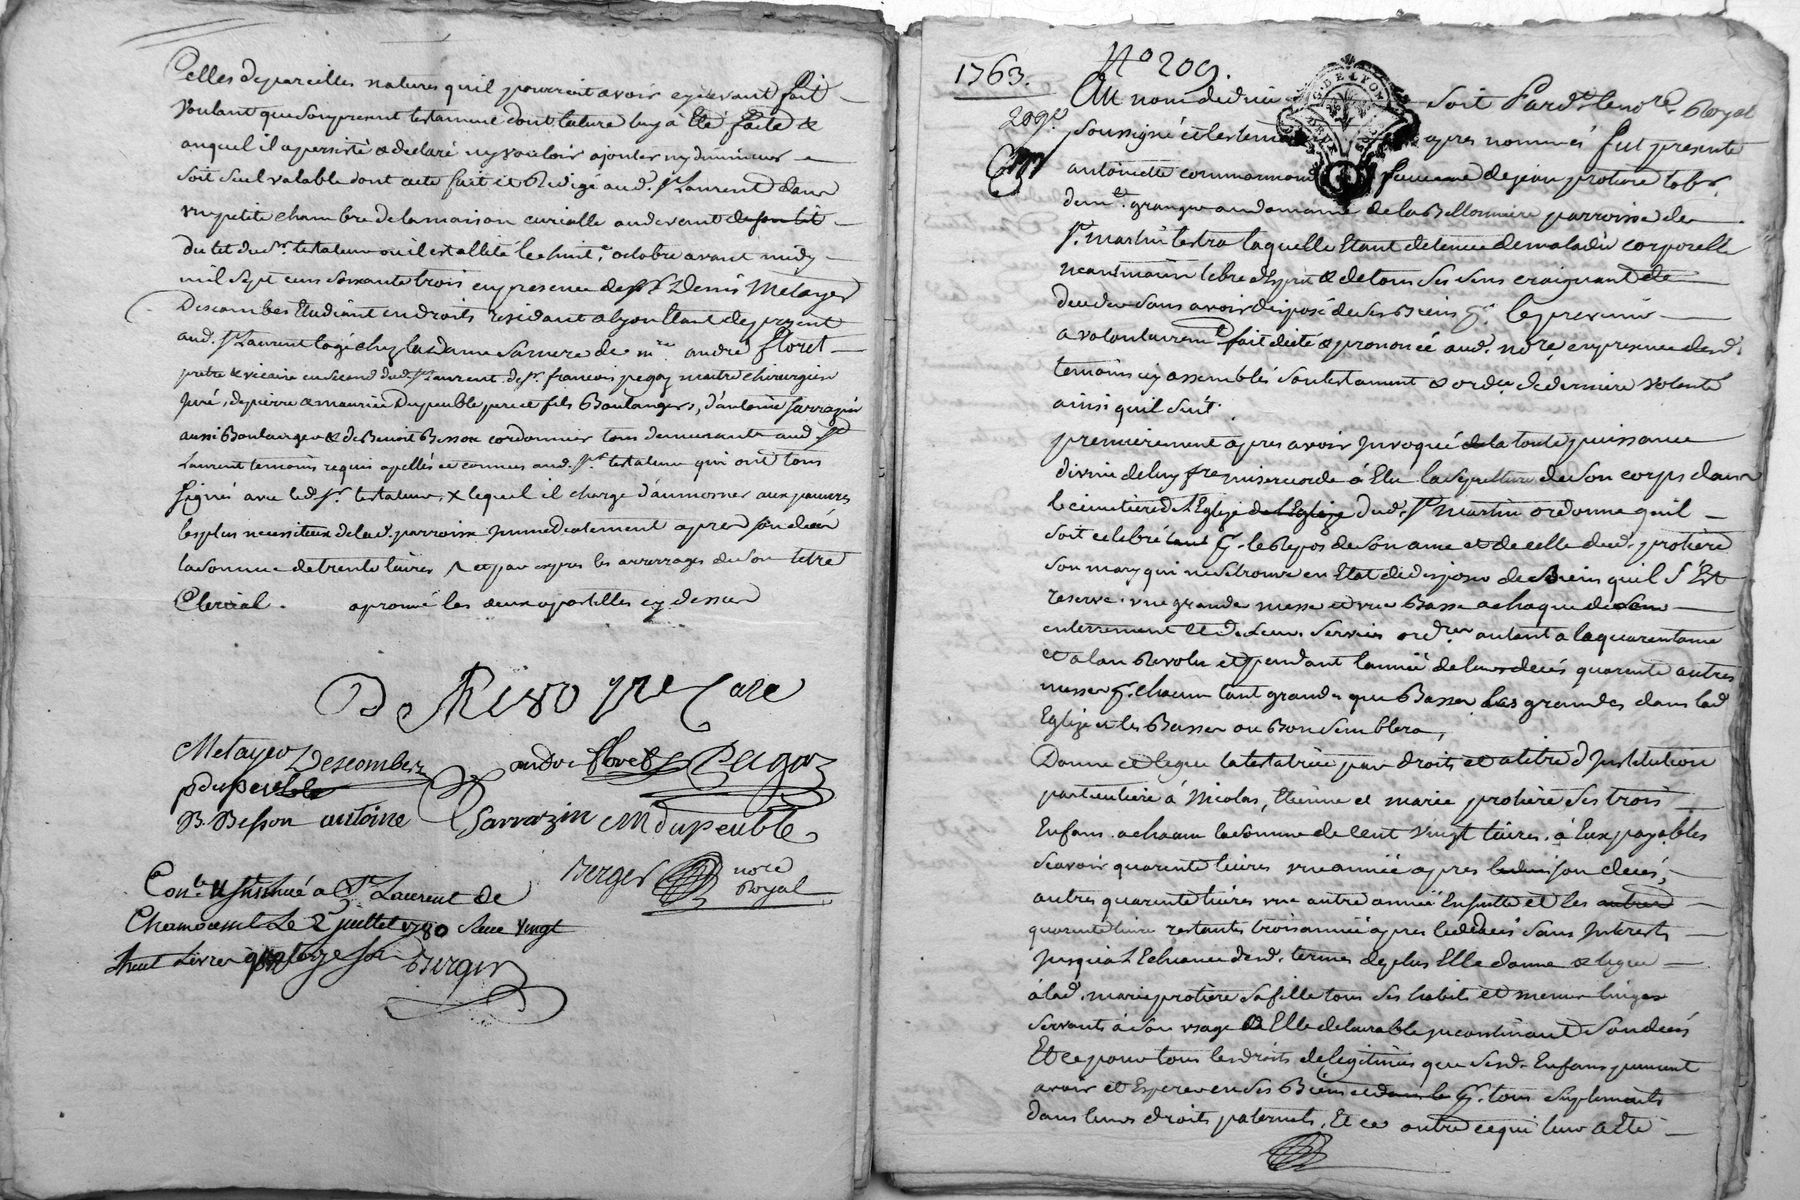 Celles de pareilles natures quil pourroit avoir cy devant fait
voulant que son present testament dont lecture luy a Eté faite &
auquel il a persisté & declaré ny vouloir ajouter ny diminuer
soit seul valable dont acte fait et Redigé aud. St Laurent dans
une petite chambre de la maison curialle au devant de son lit
du lit dud. Sr. testateur ou il est allité le huit e. octobre avant midy
mil sept cens soixante trois en presence de Sr Denis Metayer
Descombes Etudiant en droits residant a Lyon Etant de present
aud. St Laurent logé chez la dame sa mere de mre. andré floret
pretre & vicaire en second dud. St Laurent de Sr. francois pegaz maitre chirurgien
juré, de pierre & maurice Dupeuble pere et fils Boulangers, d'antoine sarrazin
aussi Boulanger & de Benoit Besson cordonnier tous demeurants aud. St
Laurent temoins requis apellés et connus aud. Sr. testateur qui ont tous
signés avec led. Sr. testateur, & lequel il charge d'aumosner aux pauvres
les plus necessiteux de lad. parroisse immediatement apres son decés
la somme de trente livres et par expres les arrerages de son titre
Clerical. aprouvé les deux apostilles cy dessus
Metayer Descombes andré floret Pegaz
p dupeuble
B. Besson antoine Sarrazin M dupeuble
Berger nore
Royal
Conle. & Insinué a St Laurent de
Chamousset Le 2 juillet 1780 Reçu vingt
huit Livres quatorze sols
Berger
1763.
No 209.
209e
Au nom de dieu soit Pardt le nore. Royal
soussigné et les temoins apres nommés fut presente
antoinette femme de jean protiere labr.
demt. granger au domaine de la Bellonniere parroisse de
St. martin lestra laquelle Etant detenue de maladie corporelle
neantmoins libre d'Esprit & de tous ses sens craignant de
deceder sans avoir disposé de ses Biens pr. le prevenir
a volontairemt fait dicté & prononcé aud. nore, en presence desd.
temoins cy assemblés son testament & ordce de derniere volonté
ainsi quil suit.
premierement apres avoir Invoqué la toute puissance
divine de luy fre misericorde à Elu la sepulture de son corps dans
le cimetiere de l'Eglize de l'Eglize dud. St martin ordonne quil
soit celebré tant pr. le Repos de son ame et de celle dud. protiere
son mary qui ne se trouve en Etat de disposer de Biens quil s'Est
reservé une grande messe et une Basse a chaque de leur
enterrement Et de leurs services ordres autant a la quarentaine
et a l'an Revolu et pendant l'année de leurs decés quarente autres
messes pr. chacun tant grandes que Basses les grandes dans lad
Eglize et les Basses ou Bon semblera,
Donne et legue la testatrice par droits et a titre d'Institution
particuliere à Nicolas, Etienne et marie protiere ses trois
Enfans a chacun la somme de cent vingt livres à Eux payables
scavoir quarente livres une année apres son decés,
autres quarente livres une autre année Ensuitte et les autres
quarente livres restantes trois année apres led. decés sans Interets
jusqua l'Echeance desd. termes de plus Elle donne & legue
à lad. marie protiere sa fille tous ses habits et menus linges
servants à son usage & Elle delivrable incontinant son decés
Et ce pour tous les droits de legitimes que sesd. Enfans peuvent
avoir et Esperer en ses Biens et dans le pr. tous suplements
dans leurs droits paternels, Et ce outre ce qui leur a Eté